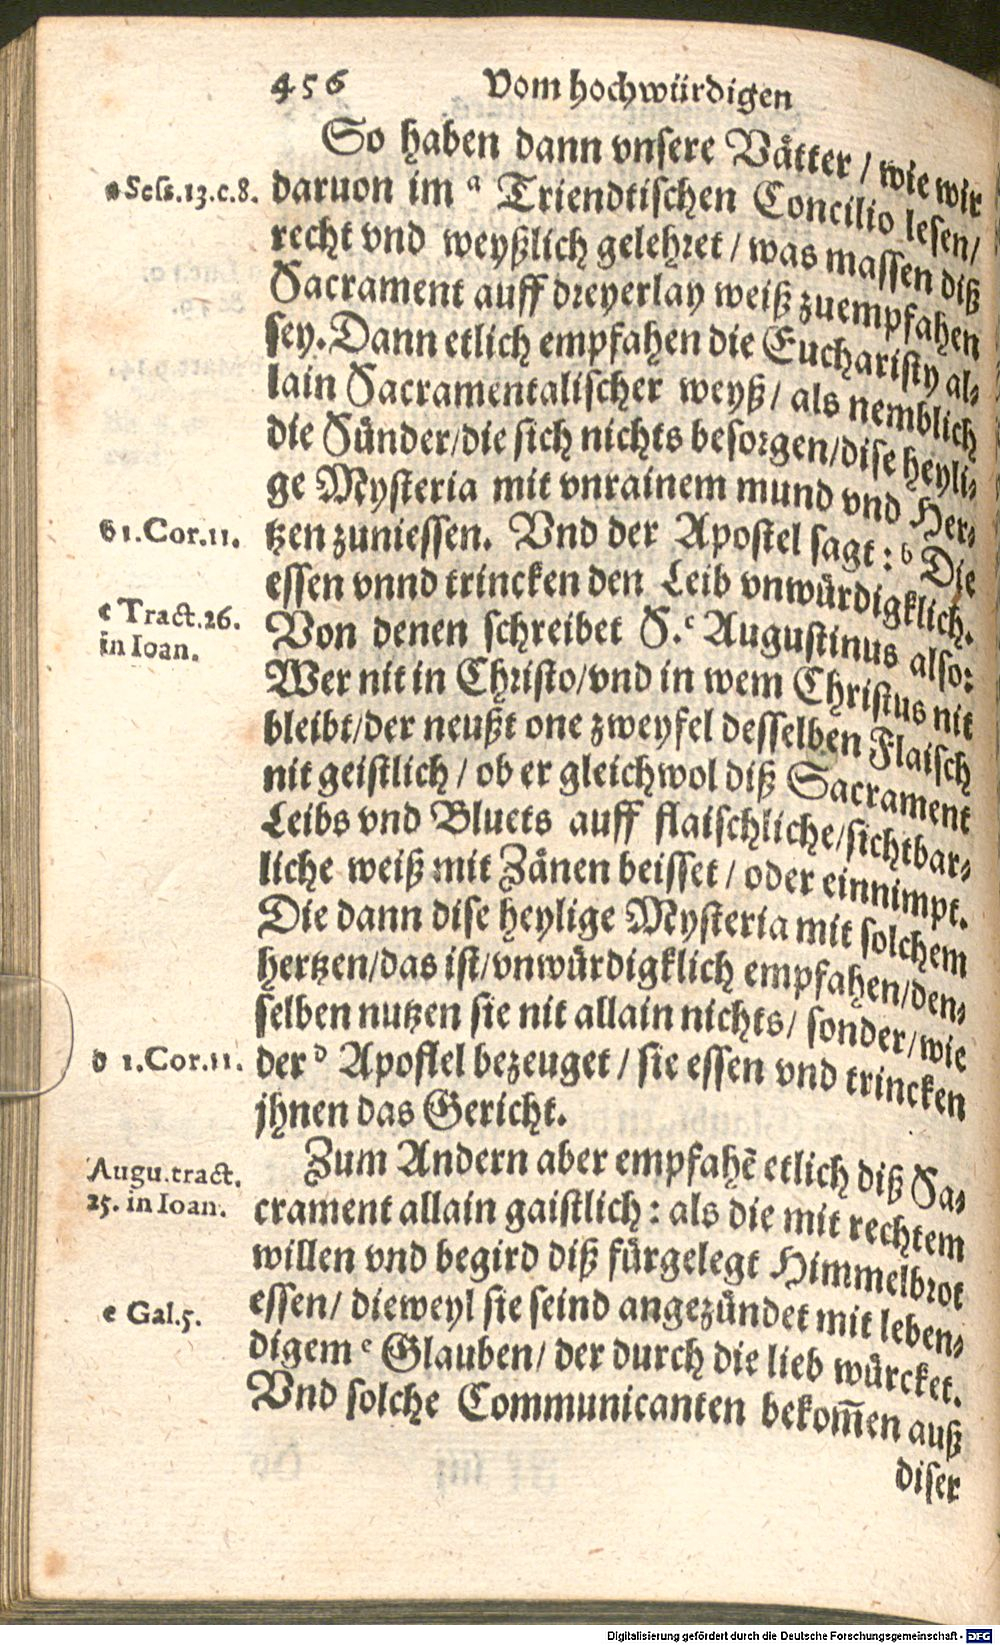 456 Vom hochwürdigen
So haben dann vnsere Vätter / wie wir
a Sess.13.c.8.
daruon im ᵃ Triendtischen Concilio lesen/
recht vnd weyßlich gelehret / was massen diß
Sacrament auff dreyerlay weiß zuempfahen
sey. Dann etlich empfahen die Eucharisty al⸗
lain Sacramentalischer weyß / als nemblich
die Sünder/die sich nichts besorgen/dise heyli⸗
ge Mysteria mit vnrainem mund vnd Her⸗
b 1.Cor.11.
tzen zuniessen. Vnd der Apostel sagt : ᵇ Die
essen vnnd trincken den Leib vnwürdigklich.
c Tract.26.
in Ioan.
Von denen schreibet S. ᶜ Augustinus also:
Wer nit in Christo/vnd in wem Christus nit
bleibt/der neußt one zweyfel desselben Flaisch
nit geistlich / ob er gleichwol diß Sacrament
Leibs vnd Bluets auff flaischliche/sichtbar⸗
liche weiß mit Zänen beisset / oder einnimpt.
Die dann dise heylige Mysteria mit solchem
hertzen/das ist/vnwürdigklich empfahen/den⸗
selben nutzen sie nit allain nichts/ sonder/wie
d 1.Cor.11.
der ᵈ Apostel bezeuget / sie essen vnd trincken
jhnen das Gericht.
Augu.tract.
25. in Ioan.
Zum Andern aber empfahē etlich diß Sa⸗
crament allain gaistlich : als die mit rechtem
willen vnd begird diß fürgelegt Himmelbrot
e Gal.5.
essen/ dieweyl sie seind angezündet mit leben⸗
digem ᵉ Glauben/ der durch die lieb würcket.
Vnd solche Communicanten bekom̄en auß
diser
Digitalisierung gefördert durch die Deutsche Forschungsgemeinschaft - DFG